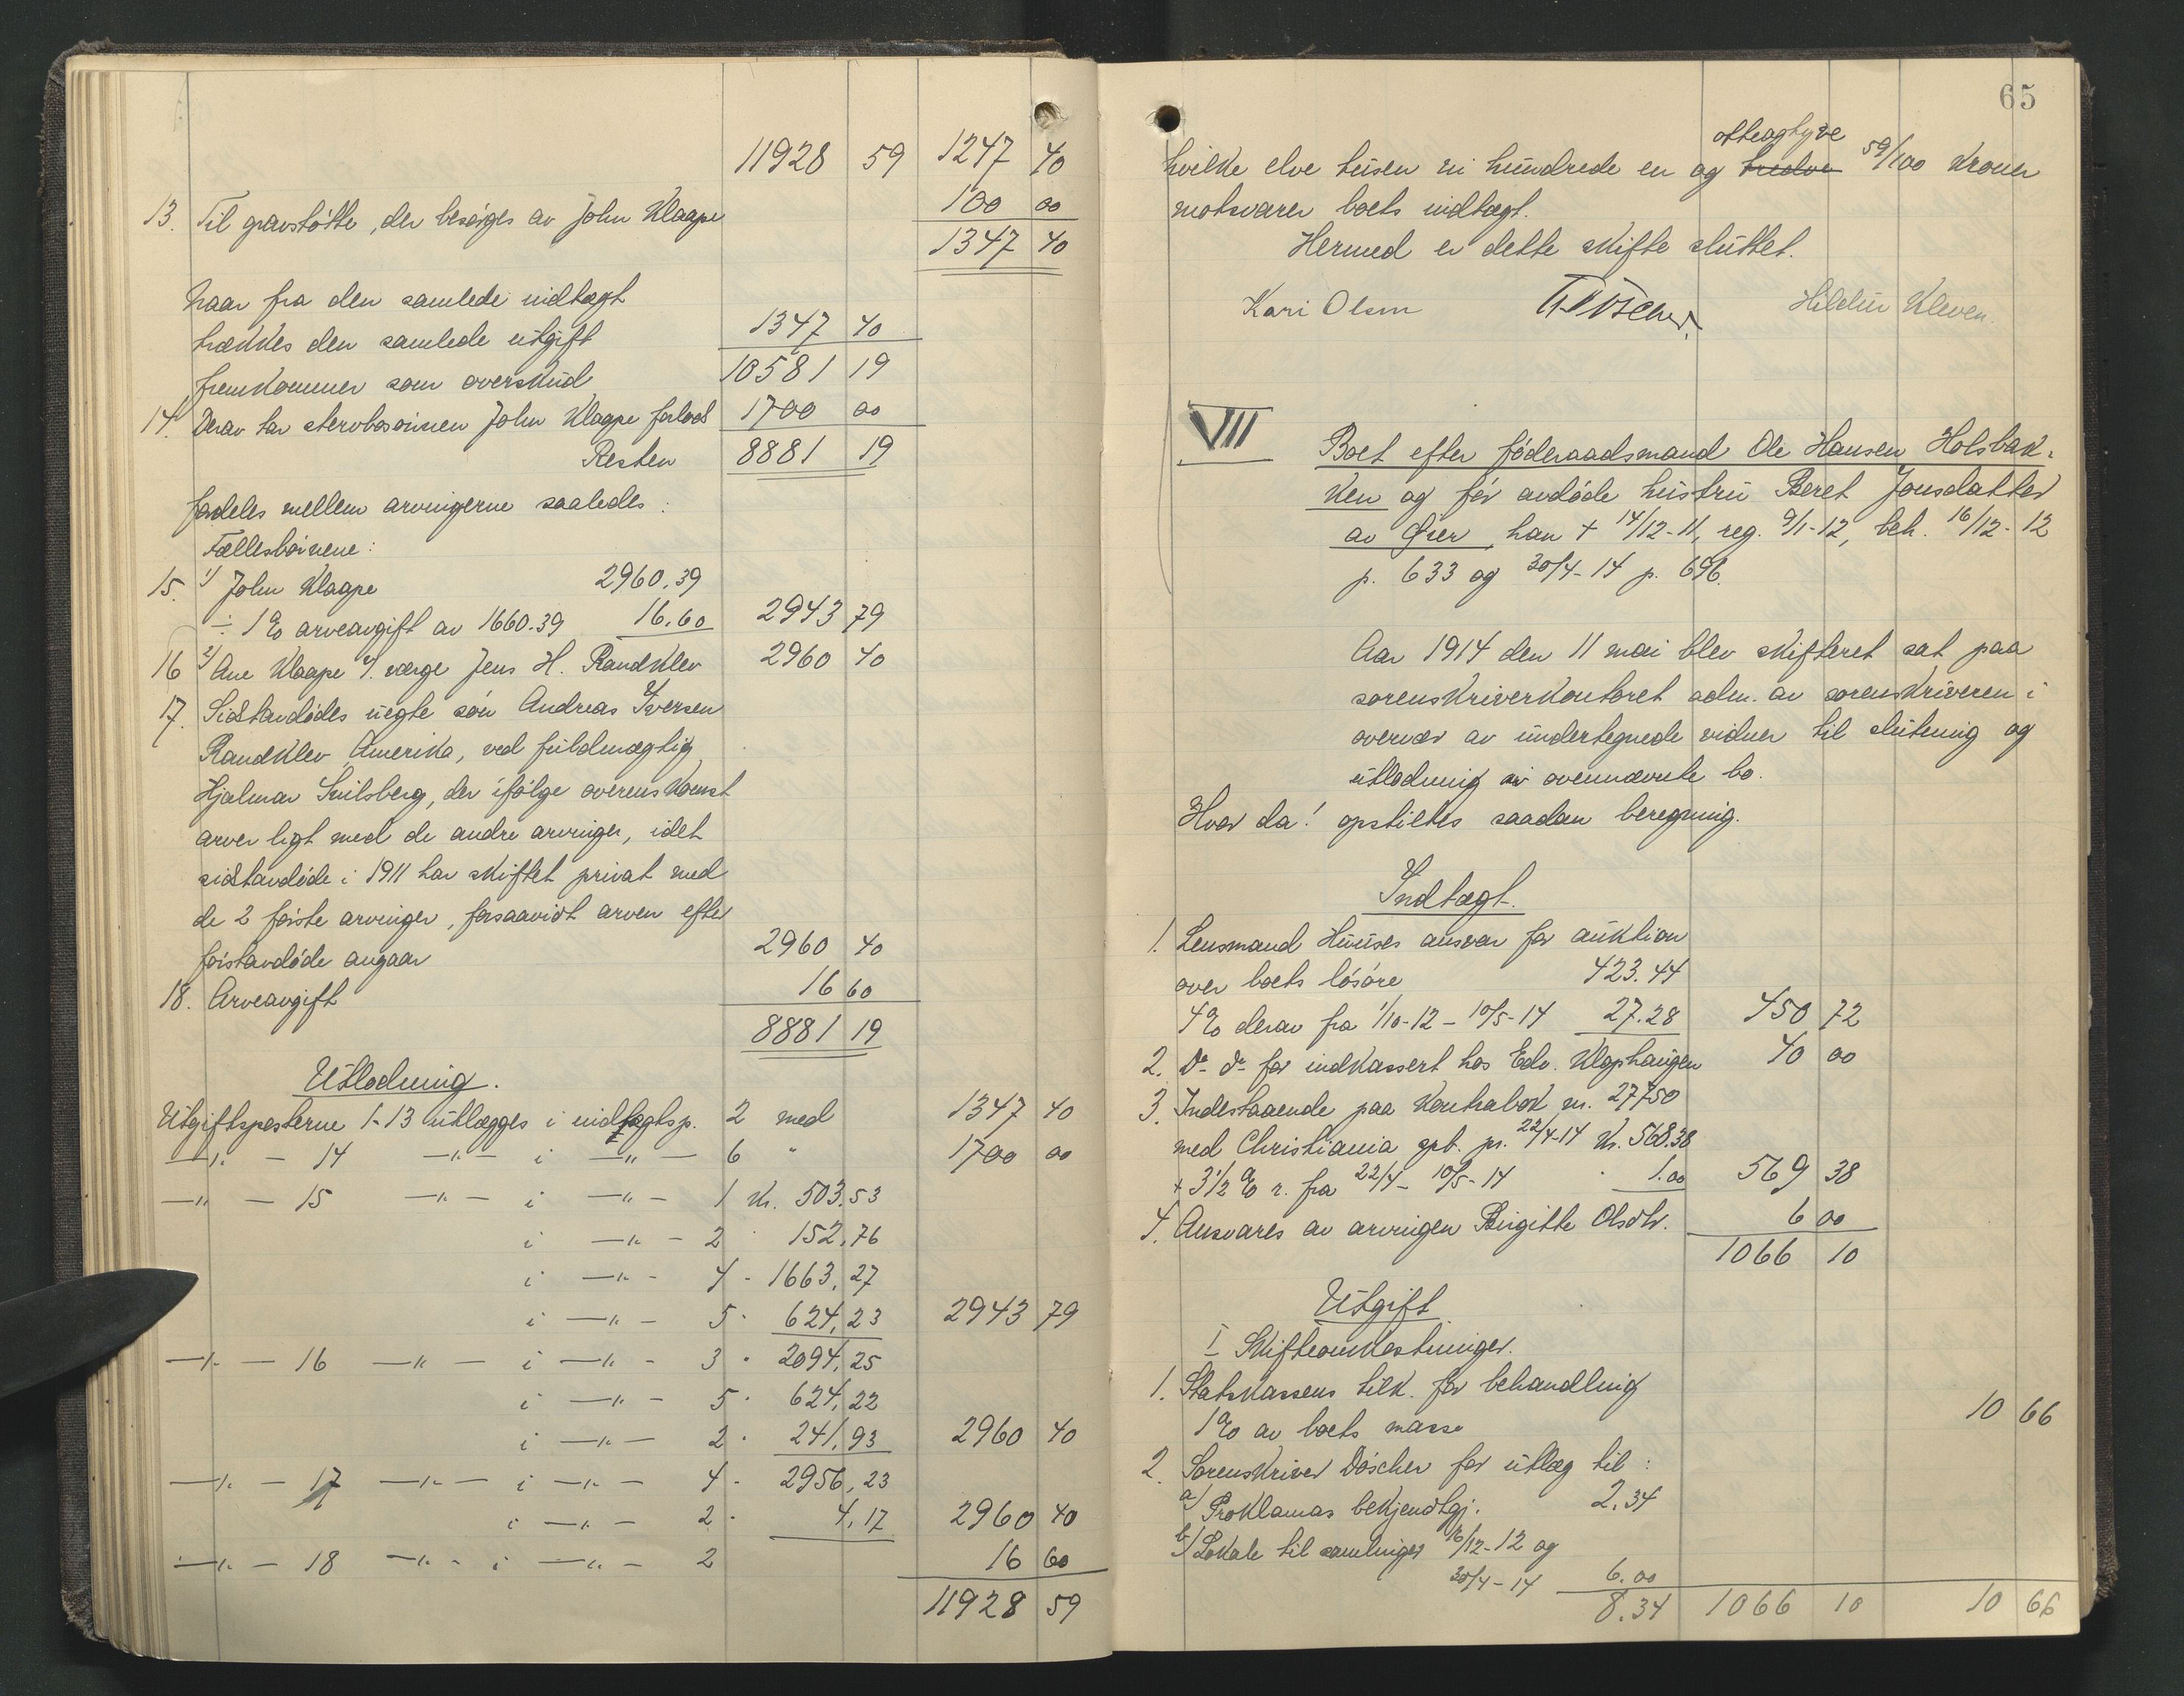 11928 59 1247 40
13. Til gravstøtte, der besørges av John Klaape 100 00
1347 40
Naar fra den samlede indtægt
trækkes den samlede utgift 1347 40
fremkommer som overskud 10581 19
14. Derav tar stervbosønnen John Klaape forlods 1700 00
Resten 8881 19
fordeles mellem arvingerne saaledes:
Fællesbørnene:
15. 1) John Klaape 2960.39
÷ 1% arveavgift av 1660.39 16.60 2943 79
16 2) Ane Klaape v. værge Jens H. Randklev 2960 40
17. Sidstavdødes uegte søn Andreas Iversen
Randklev, Amerika, ved fuldmægtig
Hjalmar Snilsberg, der ifølge overenskomst
arver ligt med de andre arvinger, idet
sidstavdøde i 1911 har skiftet privat med
de 2 første arvinger, forsaavidt arven efter
førstavdøde angaar 2960 40
18. Arveavgift 16 60
8881 19
Utlodning.
Utgiftsposterne 1-13 utlægges i indtægtsp. 2 med 1347 40
—"— - 14 —"— i —"— 6 " 1700 00
—"— - 15 —"— i —"— 1 kr. 503,53
i —"— 2 " 152,76
i —"— 4 - 1663,27
i —"— 5 - 624,23 2943 79
—"— - 16 —"— i —"— 3 " 2094,25
i —"— 5 " 624,22
i —"— 2 " 241,93 2960 40
—"— - 17 —"— i —"— 4 - 2956,23
i —"— 2 - 4,17 2960 40
—"— - 18 —"— i —"— 2 16 60
11928 59
65
otteogtyve
hvilke elve tusen ni hundrede en og tredve 59/100 kroner
motsvarer boets indtægt.
Hermed er dette skifte sluttet.
Kari Olsen Döscher. Hildur Kleven.
VII
Boet efter føderaadsmand Ole Hansen Holsbak-
ken og før avdøde hustru Beret Jonsdatter
av Øier, han † 14/12-11, reg. 9/1-12, beh. 16/12-12
p. 633 og 30/4-14 p. 696.
Aar 1914 den 11 mai blev skifteret sat paa
sorenskriverkontoret adm. av sorenskriveren i
overvær av undertegnede vidner til slutning og
utlodning av ovennævnte bo.
Hvor da! opstiltes saadan beregning.
Indtægt.
1. Lensmand Huuses ansvar for auktion
over boets løsøre 423.44
4% derav fra 1/10-12 - 10/5-14 27.28 450 72
2. Do do for indkassert hos Edv. Klophaugen 40 00
3. Indestaaende paa kontrabok nr. 27750
med Christiania spb. pr. 22/4-14 kr. 568.38
+ 3 1/2 % r. fra 22/4 - 10/5-14 " 1.00 569 38
4. Ansvares av arvingen Birgitte Olsdtr. 6 00
1066 10
Utgift
I Skifteomkostninger.
1. Statskassens tilk. for behandling
1% av boets masse 10 66
2. Sorenskriver Döscher for utlæg til:
a) Proklamas bekjendtgj. 2.34
b) Lokale til samlinger 16/12-12 og
30/4-14 6.00
8.34 1066 10 10 66